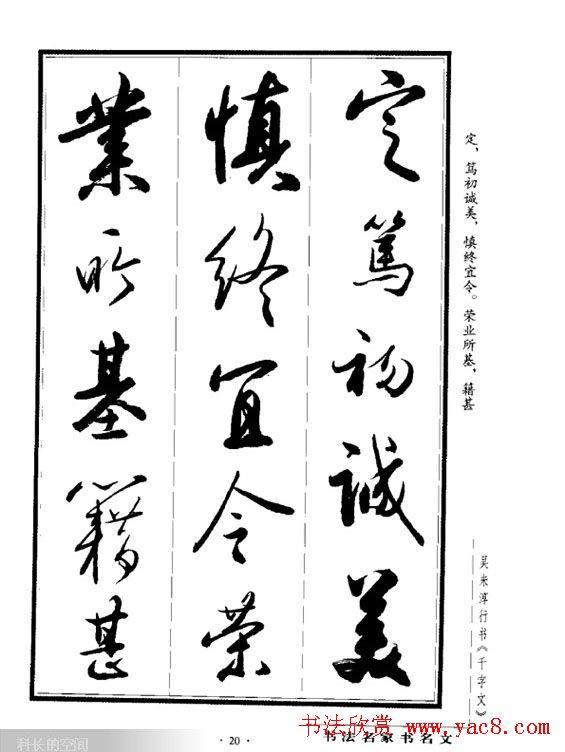 定笃初诚美
慎终宜令荣
業所基籍甚
定，笃初诚美，慎终宜令。荣业所基，籍甚
吴来淳行书《千字文》
科长的空间
·20·
书法名家书名文
书法欣赏 www.yac8.com